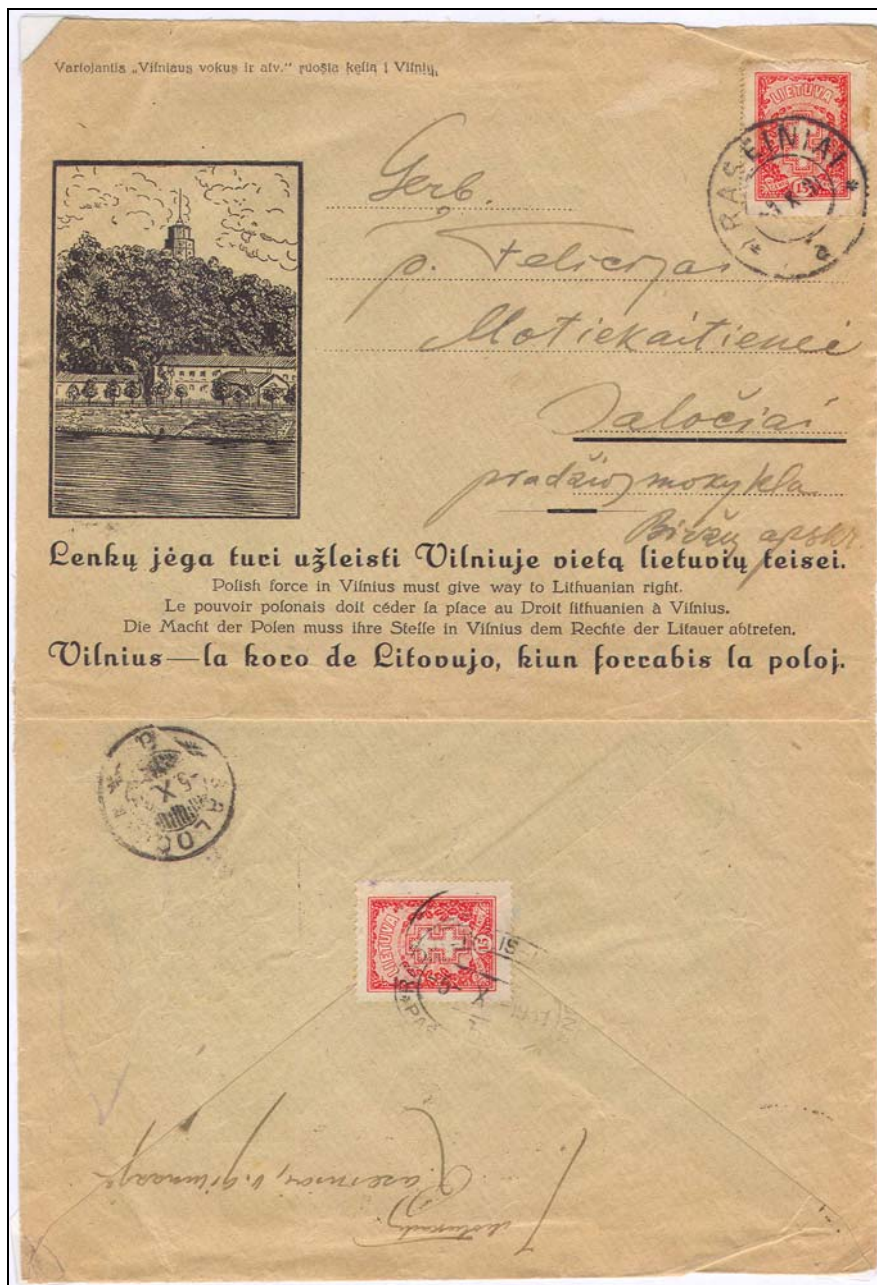 Vartojantis „Vilniaus vokus ir atv.“ ruošia kelią į Vilnių.
LIETUVA
15
RASEINIAI
Gerb.
p. Felicijai
Motiekaitienei
Saločiai
pradžios mokykla
Biržų apskr.
Lenkų jėga turi užleisti Vilniuje vietą lietuvių teisei.
Polish force in Vilnius must give way to Lithuanian right.
Le pouvoir polonais doit céder la place au Droit lithuanien à Vilnius.
Die Macht der Polen muss ihre Stelle in Vilnius dem Rechte der Litauer abtreten.
Vilnius—la koro de Litovujo, kiun forrabis la poloj.
-5. X
LIETUVA
15
-5. X